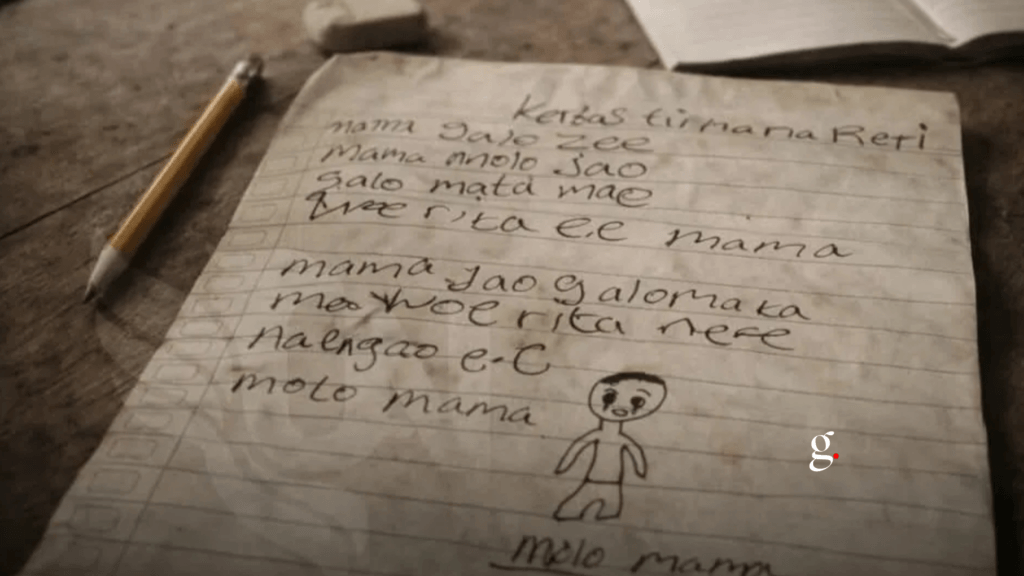 Kertas tirmama Reti
mama galo zee
mama molo Jao
galo mata mae
rita ee mama
mama Jao galo mata
woe rita nee
naengao e-e
molo mama
molo mama
g.